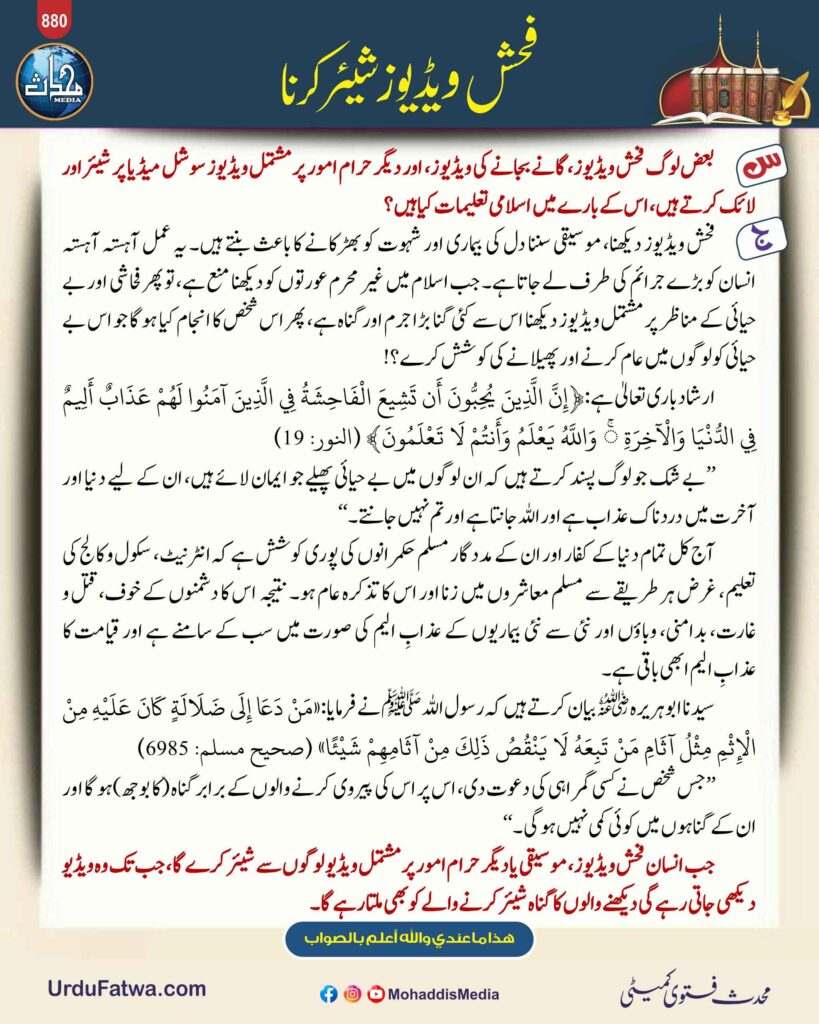 880
محدث
MEDIA
فحش ویڈیوز شیئر کرنا
س
بعض لوگ فحش ویڈیوز، گانے بجانے کی ویڈیوز، اور دیگر حرام امور پر مشتمل ویڈیوز سوشل میڈیا پر شیئر اور
لائک کرتے ہیں، اس کے بارے میں اسلامی تعلیمات کیا ہیں؟
ج
فحش ویڈیوز دیکھنا، موسیقی سننا دل کی بیماری اور شہوت کو بھڑکانے کا باعث بنتے ہیں۔ یہ عمل آہستہ آہستہ
انسان کو بڑے جرائم کی طرف لے جاتا ہے۔ جب اسلام میں غیر محرم عورتوں کو دیکھنا منع ہے، تو پھر فحاشی اور بے
حیائی کے مناظر پر مشتمل ویڈیوز دیکھنا اس سے کئی گنا بڑا جرم اور گناہ ہے، پھر اس شخص کا انجام کیا ہو گا جو اس بے
حیائی کو لوگوں میں عام کرنے اور پھیلانے کی کوشش کرے؟!
ارشاد باری تعالیٰ ہے: ﴿إِنَّ الَّذِينَ يُحِبُّونَ أَن تَشِيعَ الْفَاحِشَةُ فِي الَّذِينَ آمَنُوا لَهُمْ عَذَابٌ أَلِيمٌ
فِي الدُّنْيَا وَالْآخِرَةِ ۚ وَاللَّهُ يَعْلَمُ وَأَنتُمْ لَا تَعْلَمُونَ﴾ (النور: 19)
”بے شک جو لوگ پسند کرتے ہیں کہ ان لوگوں میں بے حیائی پھیلے جو ایمان لائے ہیں، ان کے لیے دنیا اور
آخرت میں دردناک عذاب ہے اور اللہ جانتا ہے اور تم نہیں جانتے۔“
آج کل تمام دنیا کے کفار اور ان کے مددگار مسلم حکمرانوں کی پوری کوشش ہے کہ انٹرنیٹ، سکول و کالج کی
تعلیم، غرض ہر طریقے سے مسلم معاشروں میں زنا اور اس کا تذکرہ عام ہو۔ نتیجہ اس کا دشمنوں کے خوف، قتل و
غارت، بدامنی، وباؤں اور نئی سے نئی بیماریوں کے عذابِ الیم کی صورت میں سب کے سامنے ہے اور قیامت کا
عذابِ الیم ابھی باقی ہے۔
سیدنا ابو ہریرہ رضی اللہ عنہ بیان کرتے ہیں کہ رسول اللہ ﷺ نے فرمایا: «مَنْ دَعَا إِلَى ضَلَالَةٍ كَانَ عَلَيْهِ مِنْ
الْإِثْمِ مِثْلُ آثَامِ مَنْ تَبِعَهُ لَا يَنْقُصُ ذَلِكَ مِنْ آثَامِهِمْ شَيْئًا» (صحيح مسلم: 6985)
”جس شخص نے کسی گمراہی کی دعوت دی، اس پر اس کی پیروی کرنے والوں کے برابر گناہ (کا بوجھ) ہو گا اور
ان کے گناہوں میں کوئی کمی نہیں ہو گی۔“
جب انسان فحش ویڈیوز، موسیقی یا دیگر حرام امور پر مشتمل ویڈیو لوگوں سے شیئر کرے گا، جب تک وہ ویڈیو
دیکھی جاتی رہے گی دیکھنے والوں کا گناہ شیئر کرنے والے کو بھی ملتا رہے گا۔
هذا ما عندي والله أعلم بالصواب
UrduFatwa.com
MohaddisMedia
محدث فتویٰ کمیٹی